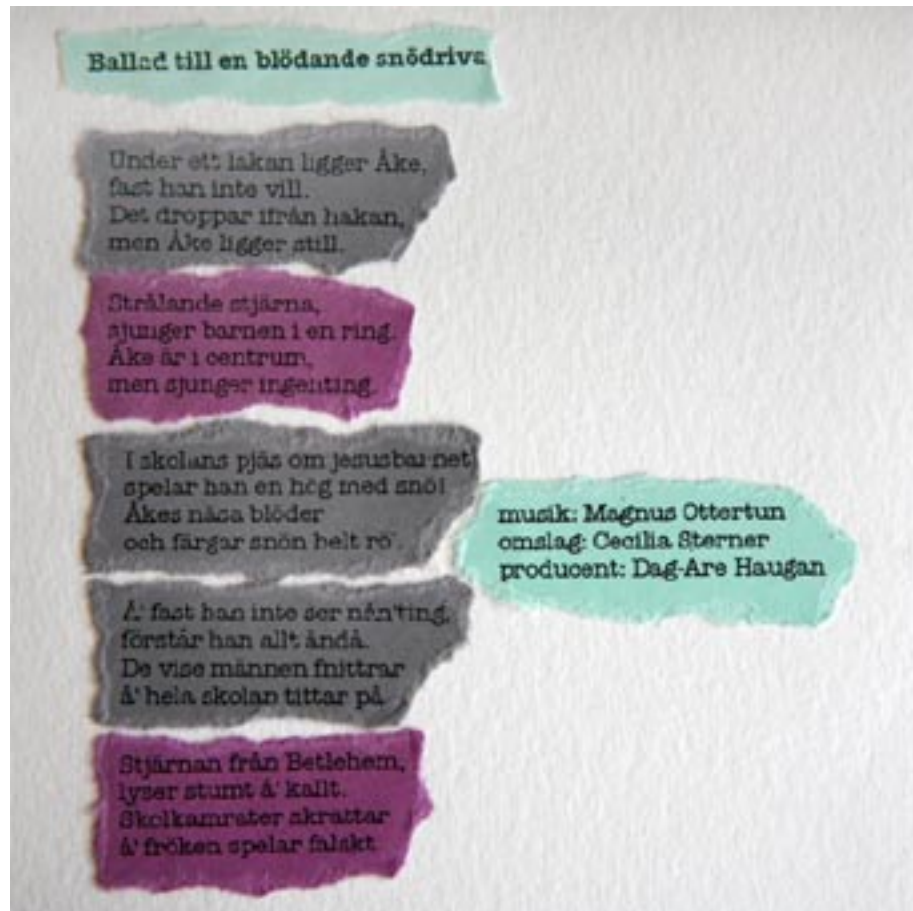 Ballad till en blödande snödriva
Under ett lakan ligger Åke,
fast han inte vill.
Det droppar ifrån hakan,
men Åke ligger still.
Strålande stjärna,
sjunger barnen i en ring.
Åke är i centrum,
men sjunger ingenting.
I skolans pjäs om jesusbarnet
spelar han en hög med snö.
Åkes näsa blöder
och färgar snön helt rö'.
Å' fast han inte ser nån'ting,
förstår han allt ändå.
De vise männen fnittrar
å' hela skolan tittar på
Stjärnan från Betlehem,
lyser stumt å' kallt.
Skolkamrater skrattar
å' fröken spelar falskt
musik: Magnus Ottertun
omslag: Cecilia Sterner
producent: Dag-Are Haugan